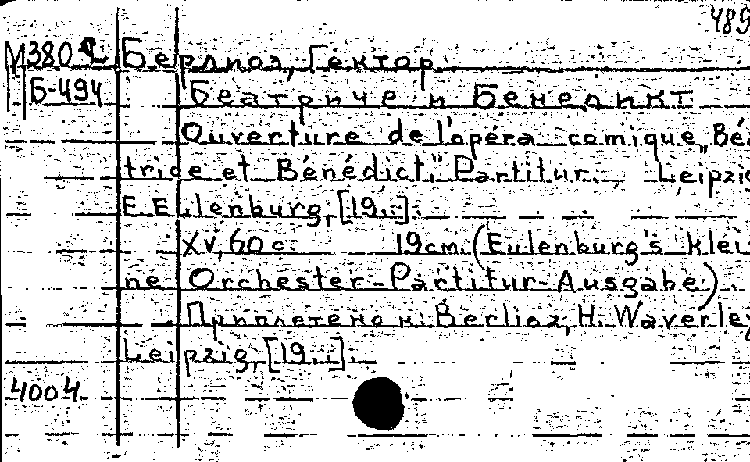 485
М380 Берлиоз, Гектор.
Б-494 Беатриче и Бенедикт
Ouverture de l'opéra comique „Béa
trice et Bénédict." Partitur. Leipzig
E. Eulenburg, [19..].
XV, 60 с. 19 cm. (Eulenburg's klei
ne Orchester-Partitur-Ausgabe).
Приплетено к: Berlioz, H. Waverley
Leipzig, [19..].
4004